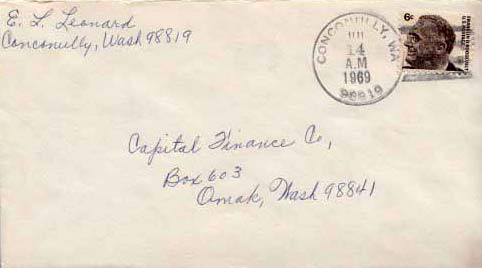 E. L. Leonard
Conconully, Wash 98819
CONCONULLY, WA
14
A.M
1969
98819
6¢
Capital Finance Co,
Box 603
Omak, Wash 98841